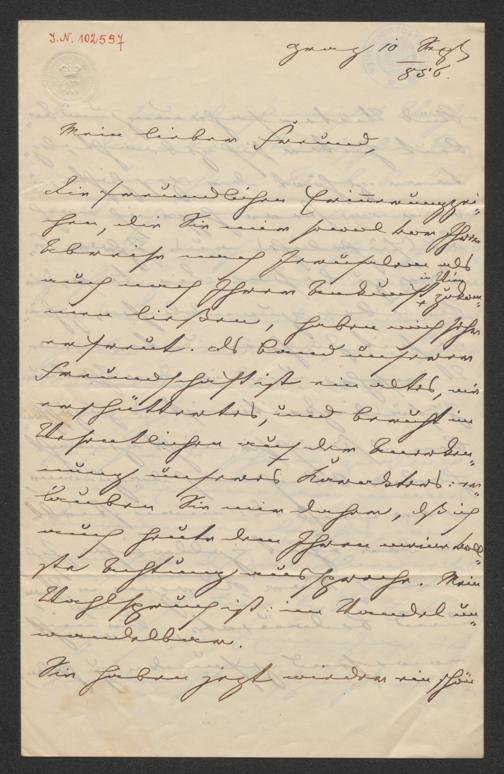 I.N. 102597
Graz 10 Sept
856.
Mein lieber Freund,
Die freundlichen Erinnerungszei-
chen, die Sie mir sowol vor Ihrer
Abreise nach Jerusalem als
auch nach Ihrer Ankunft in Wien zukom-
men ließen, haben mich sehr
erfreut. Das Band unserer
Freundschaft ist ein altes, nie
erschüttertes, und beruht im
Wesentlichen auf der Anerken-
nung unseres Karakters: er-
lauben Sie mir daher, daß ich
auch heute den Ihren meine voll-
ste Achtung ausspreche. Mein
Wahlspruch ist: im Wandel un-
wandelbar.
Sie haben jezt wieder ein schön